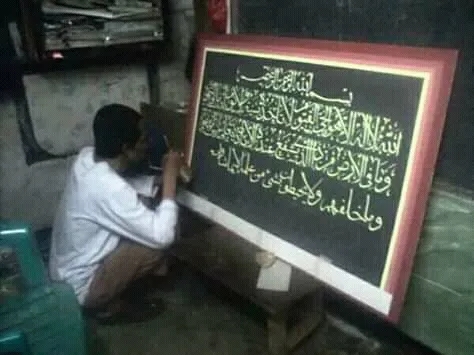 بسم الله الرحمن الرحيم
الله لا اله الا هو الحي القيوم لا تأخذه سنة ولا نوم له ما في السموات
وما في الارض من ذا الذي يشفع عنده الا باذنه يعلم ما بين ايديهم
وما خلفهم ولا يحيطون بشئ من علمه الا بما